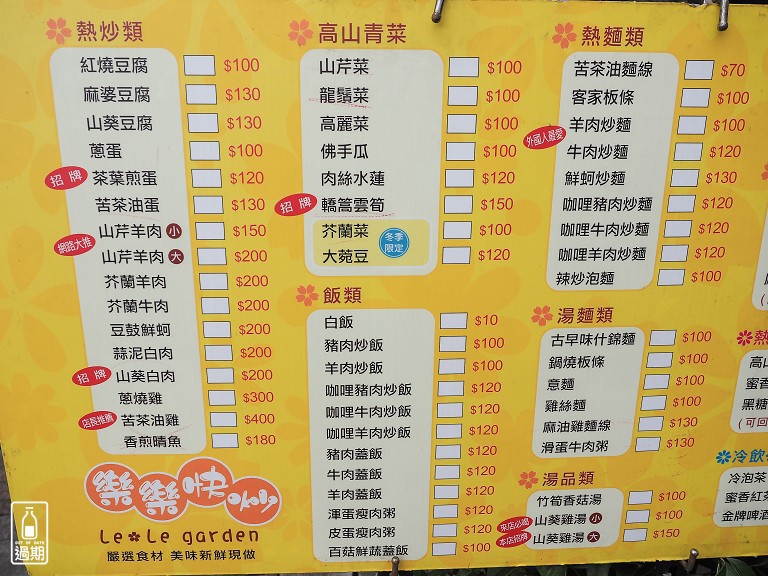 熱炒類
紅燒豆腐 $100
麻婆豆腐 $130
山葵豆腐 $130
蔥蛋 $100
招牌 茶葉煎蛋 $120
苦茶油蛋 $130
網路大推
山芹羊肉 小 $150
山芹羊肉 大 $200
芥蘭羊肉 $200
芥蘭牛肉 $200
豆鼓鮮蚵 $200
蒜泥白肉 $200
招牌 山葵白肉 $200
蔥燒雞 $300
店長推薦 苦茶油雞 $400
香煎晴魚 $180
樂樂快炒
Le Le garden
嚴選食材 美味新鮮現做
高山青菜
山芹菜 $100
龍鬚菜 $100
高麗菜 $100
佛手瓜 $100
肉絲水蓮 $120
招牌 轎篙雲筍 $150
芥蘭菜 $100
大菀豆 $120
冬季
限定
飯類
白飯 $10
豬肉炒飯 $100
羊肉炒飯 $100
咖哩豬肉炒飯 $120
咖哩牛肉炒飯 $120
咖哩羊肉炒飯 $120
豬肉蓋飯 $120
牛肉蓋飯 $120
羊肉蓋飯 $120
渾蛋瘦肉粥 $120
皮蛋瘦肉粥 $120
百菇鮮蔬蓋飯 $100
熱麵類
苦茶油麵線 $70
客家板條 $100
外國人最愛
羊肉炒麵 $100
牛肉炒麵 $120
鮮蚵炒麵 $130
咖哩豬肉炒麵 $120
咖哩牛肉炒麵 $120
咖哩羊肉炒麵 $120
辣炒泡麵 $100
湯麵類
古早味什錦麵 $100
鍋燒板條 $100
意麵 $100
雞絲麵 $100
麻油雞麵線 $130
滑蛋牛肉粥 $130
湯品類
竹筍香菇湯 $100
來店必喝
本店招牌
山葵雞湯 小 $100
山葵雞湯 大 $150
熱
高山
蜜香
黑糖
(可回
冷飲
冷泡茶
蜜香紅茶
金牌啤酒
OUT OF DATE
過期